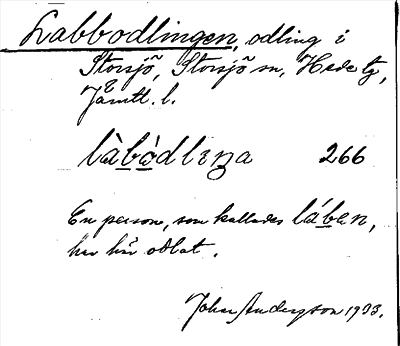 Labbodlingen, odling i
Storsjö, Storsjö sn, Hede tg,
Jämtl. l.
làbòdlɩŋa 266
En person, som kallades láben,
har här odlat.
Johan Anderson 1933.